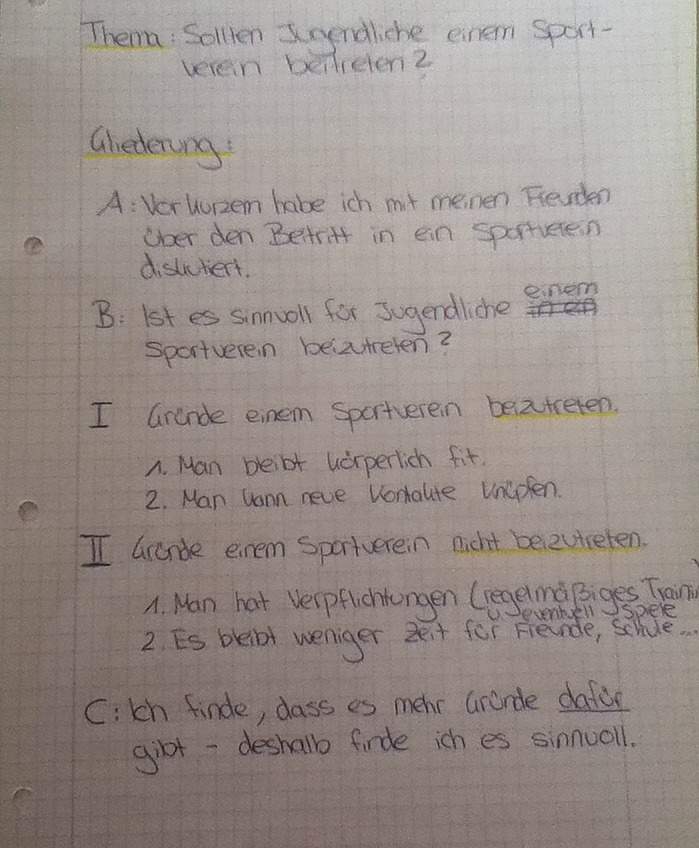 Thema: Sollten Jugendliche einem Sport-
verein beitreten?
Gliederung:
A: Vor kurzem habe ich mit meinen Freunden
über den Beitritt in ein Sportverein
diskutiert.
B: Ist es sinnvoll für Jugendliche einem
Sportverein beizutreten?
I Gründe einem Sportverein beizutreten.
1. Man bleibt körperlich fit.
2. Man kann neue Kontakte knüpfen.
II Gründe einem Sportverein nicht beizutreten.
1. Man hat Verpflichtungen (regelmäßiges Training
u. eventuell Spiele
2. Es bleibt weniger Zeit für Freunde, Schule...
C: Ich finde, dass es mehr Gründe dafür
gibt - deshalb finde ich es sinnvoll.